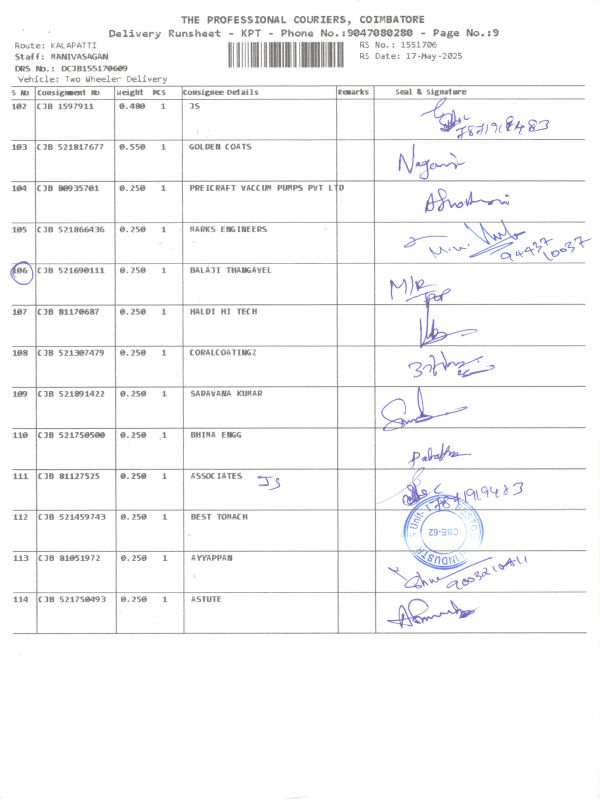 THE PROFESSIONAL COURIERS, COIMBATORE
Delivery Runsheet - KPT - Phone No.:9047080280 - Page No.:9
Route: KALAPATTI RS No.: 1551706
Staff: MANIVASAGAN RS Date: 17-May-2025
DRS No.: DCJB155170609
Vehicle: Two Wheeler Delivery
S No Consignment No Weight PCS Consignee Details Remarks Seal & Signature
102 CJB 1597911 0.480 1 JS
7871919483
103 CJB 521817677 0.550 1 GOLDEN COATS
104 CJB 80935701 0.250 1 PREICRAFT VACCUM PUMPS PVT LTD
105 CJB 521866436 0.250 1 MARKS ENGINEERS
94437
10037
106 CJB 521690111 0.250 1 BALAJI THANGAVEL M/R
107 CJB 81170687 0.250 1 HALDI HI TECH
108 CJB 521307479 0.250 1 CORALCOATINGZ
109 CJB 521891422 0.250 1 SARAVANA KUMAR
110 CJB 521750500 0.250 1 BHIMA ENGG
111 CJB 81127525 0.250 1 ASSOCIATES JS
7871919483
112 CJB 521459743 0.250 1 BEST TOMACH
Unit-1
CBE-62
113 CJB 81051972 0.250 1 AYYAPPAN
114 CJB 521750493 0.250 1 ASTUTE